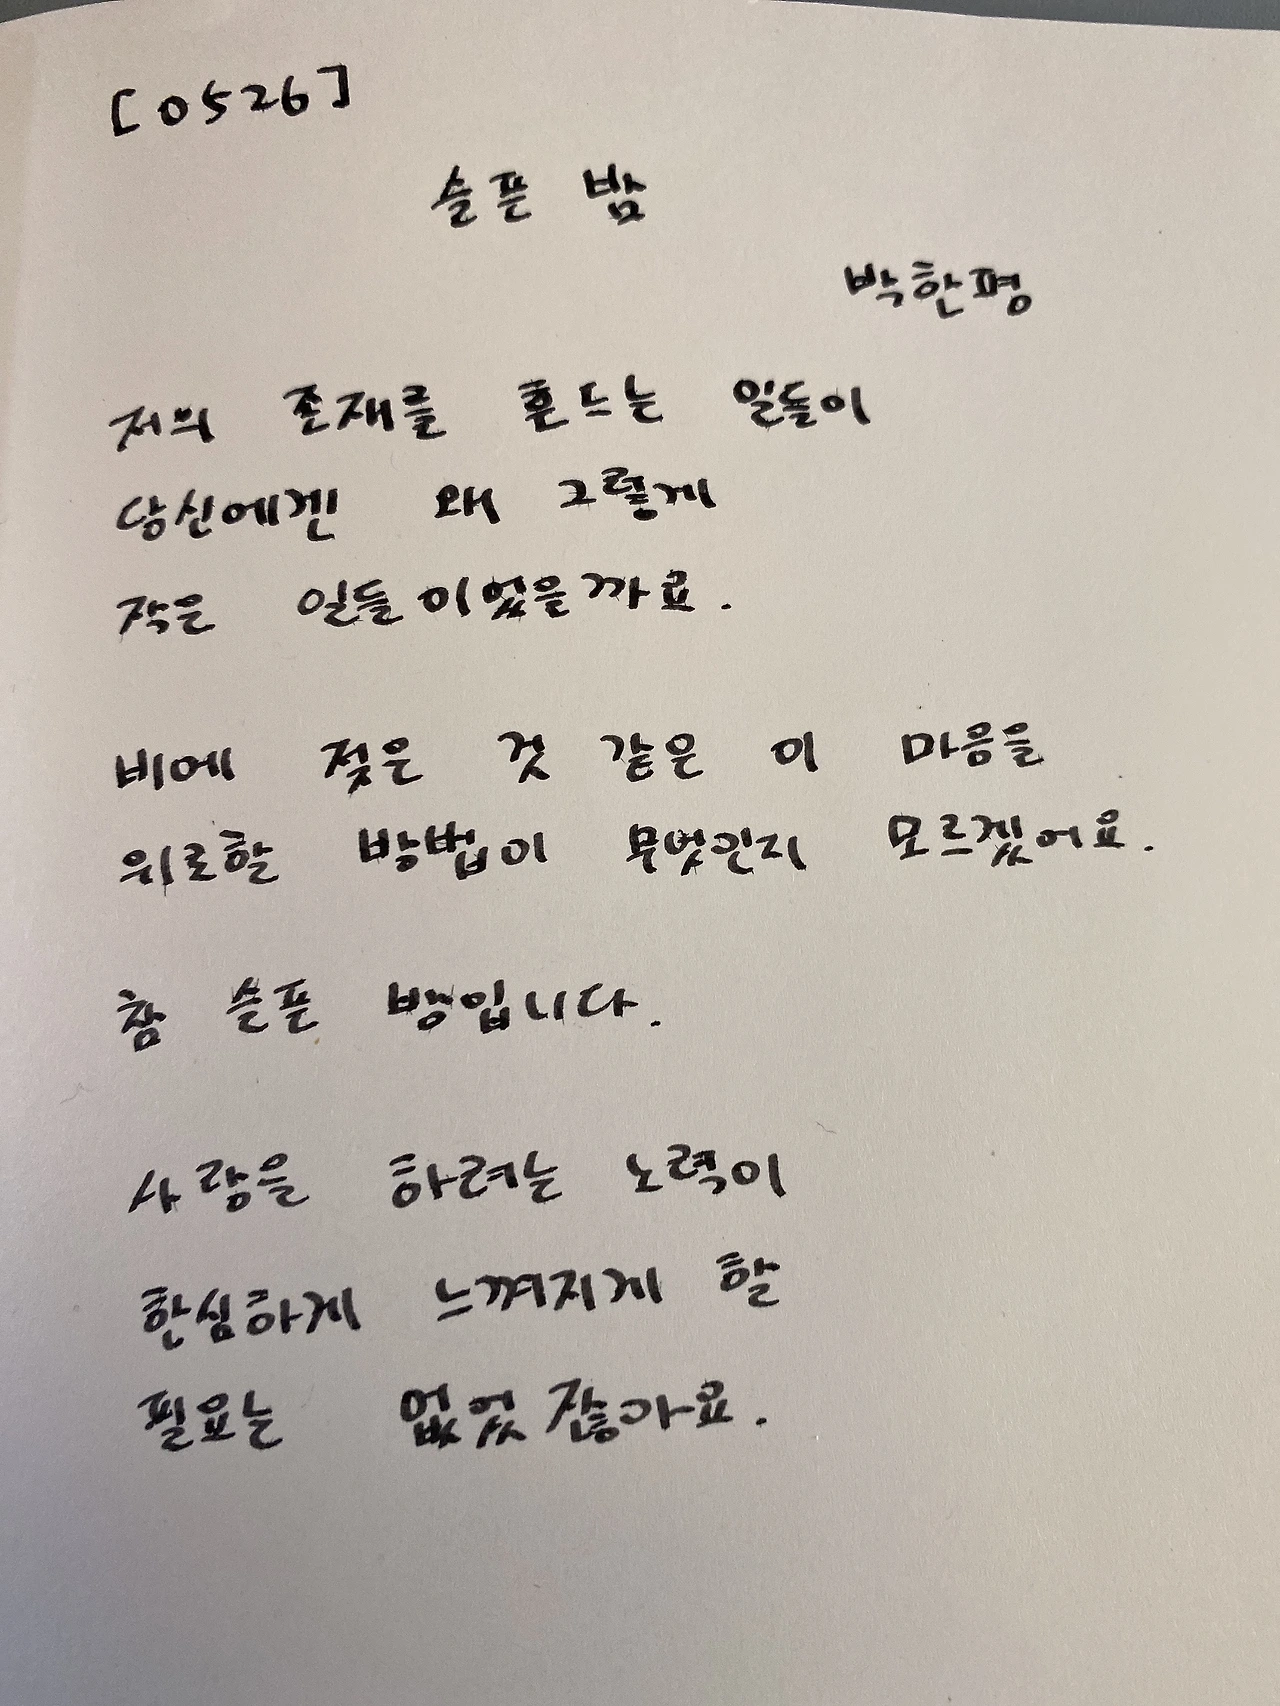 [0526]
슬픈 밤
박한평
저의 존재를 흔드는 일들이
당신에겐 왜 그렇게
작은 일들이었을까요.
비에 젖은 것 같은 이 마음을
위로할 방법이 무엇인지 모르겠어요.
참 슬픈 밤입니다.
사랑을 하려는 노력이
한심하게 느껴지게 할
필요는 없었잖아요.